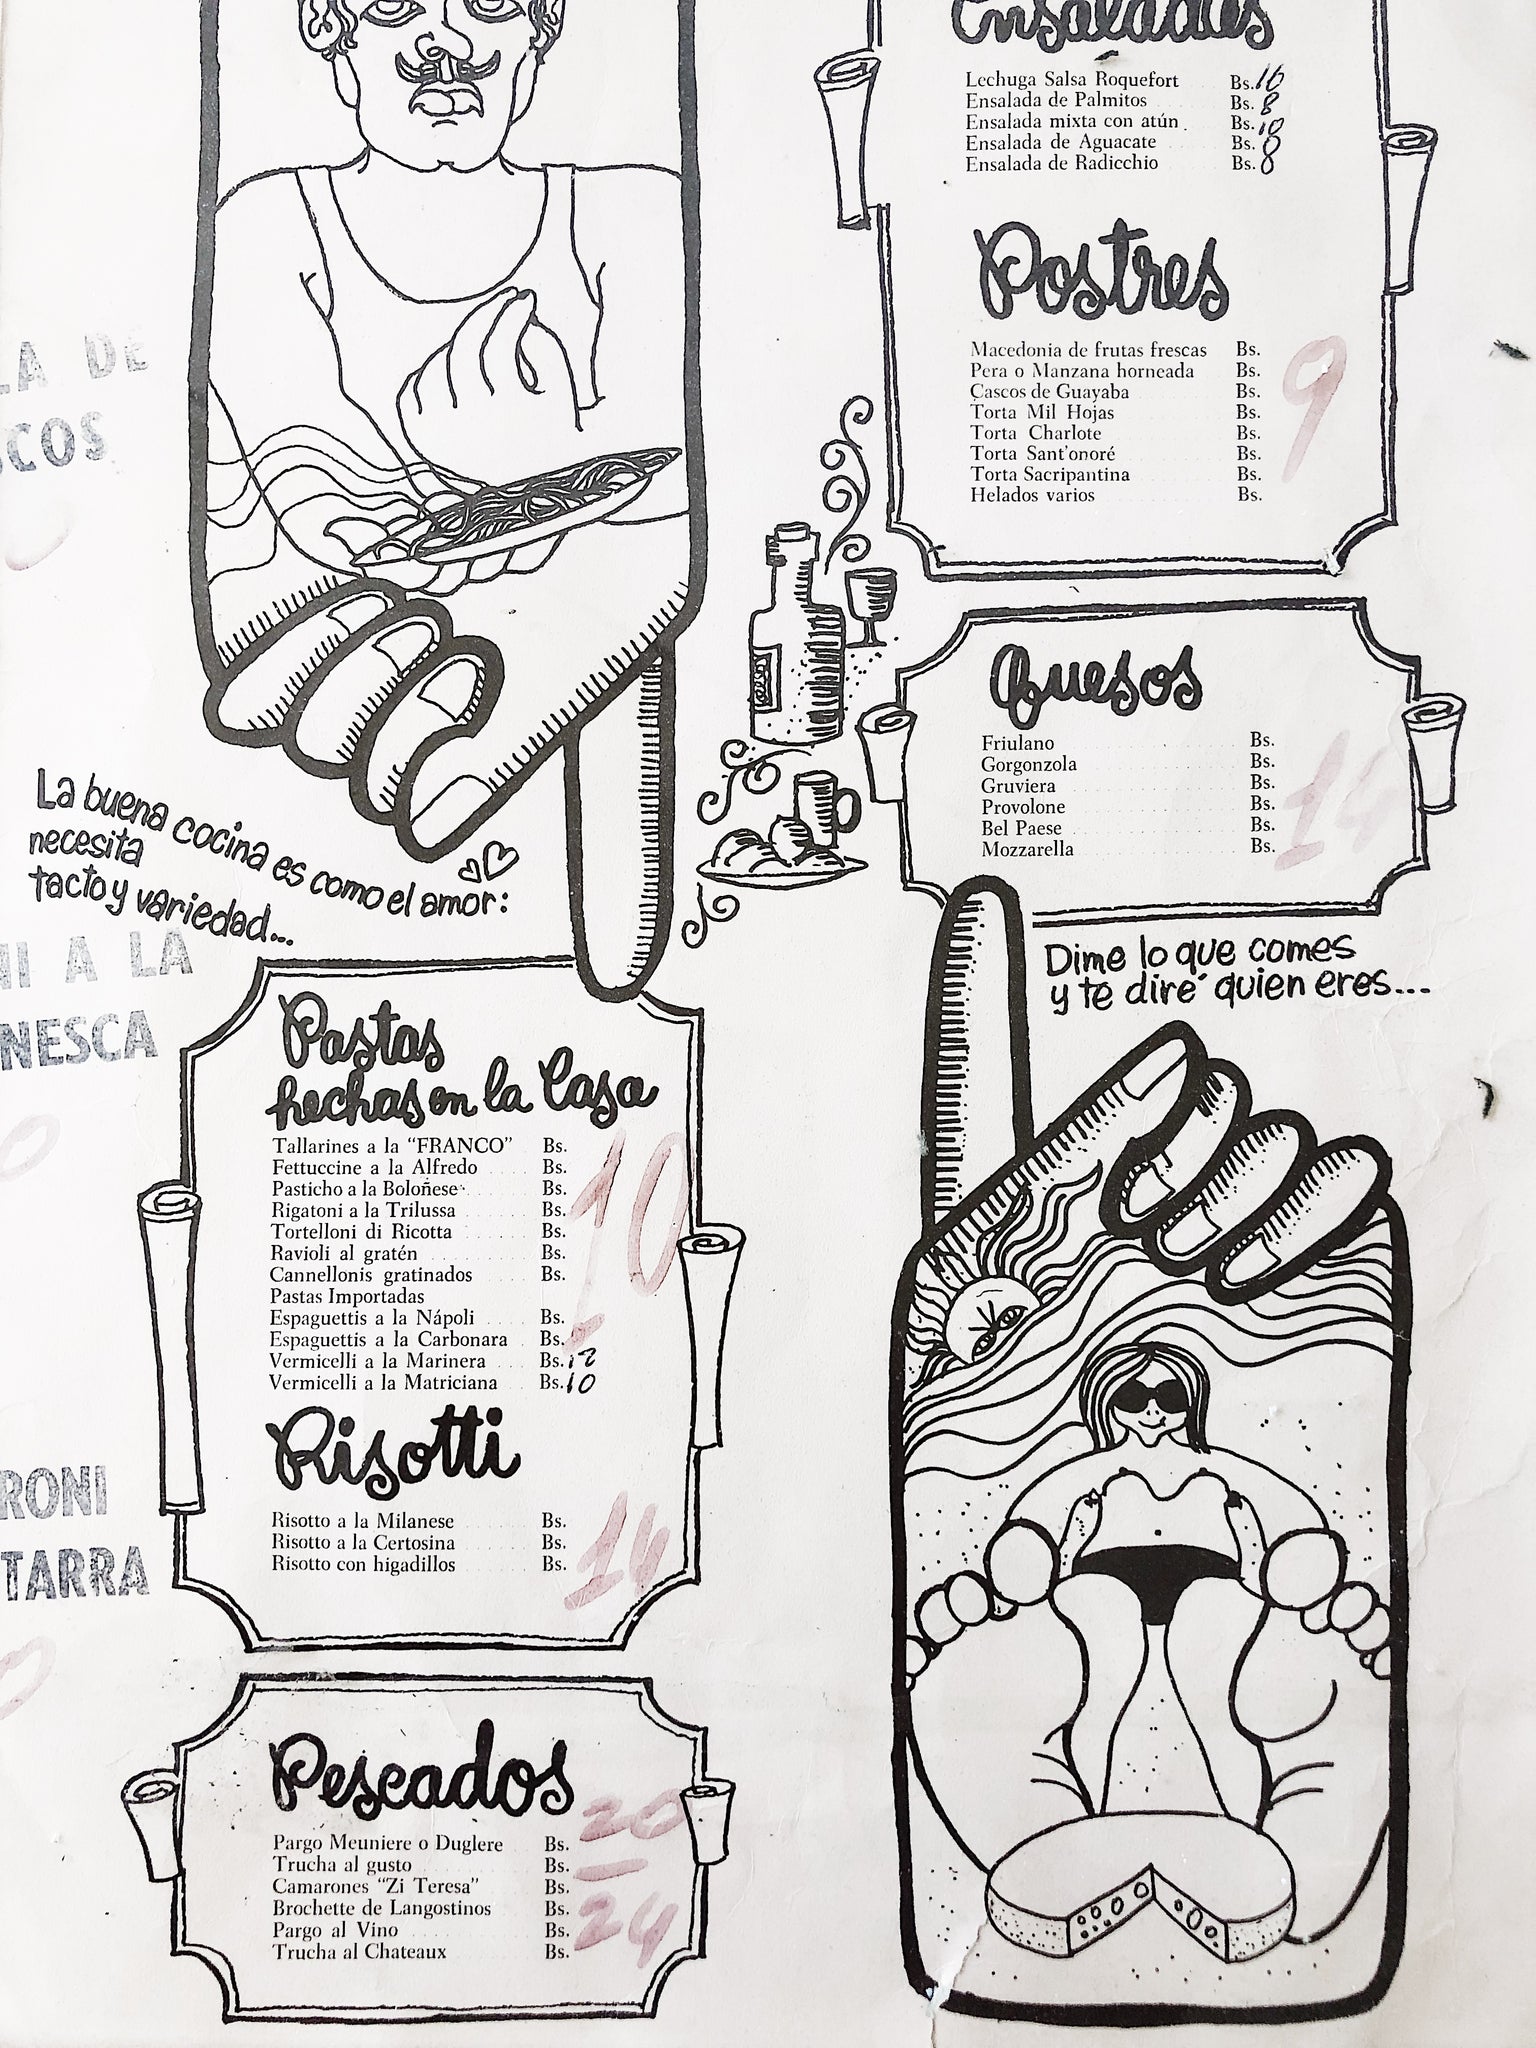 LA DE
COS
La buena cocina es como el amor:
necesita
tacto y variedad...
NI A LA
NESCA
Pastas
hechas en la Casa
Tallarines a la "FRANCO" Bs.
Fettuccine a la Alfredo Bs.
Pasticho a la Boloñese Bs.
Rigatoni a la Trilussa Bs.
Tortelloni di Ricotta Bs.
Ravioli al gratén Bs.
Cannellonis gratinados Bs.
10
Pastas Importadas
Espaguettis a la Nápoli Bs.
Espaguettis a la Carbonara Bs.
Vermicelli a la Marinera Bs. 12
Vermicelli a la Matriciana Bs. 10
RONI
TARRA
Risotti
Risotto a la Milanese Bs.
Risotto a la Certosina Bs.
Risotto con higadillos Bs.
Pescados
20
Pargo Meuniere o Duglere Bs.
Trucha al gusto Bs.
Camarones "Zi Teresa" Bs.
Brochette de Langostinos Bs.
24
Pargo al Vino Bs.
Trucha al Chateaux Bs.
Ensaladas
Lechuga Salsa Roquefort Bs.
Ensalada de Palmitos Bs. 8
Ensalada mixta con atún Bs. 10
Ensalada de Aguacate Bs. 8
Ensalada de Radicchio Bs. 8
Postres
Macedonia de frutas frescas Bs.
Pera o Manzana horneada Bs.
Cascos de Guayaba Bs.
9
Torta Mil Hojas Bs.
Torta Charlote Bs.
Torta Sant'onoré Bs.
Torta Sacripantina Bs.
Helados varios Bs.
Quesos
Friulano Bs.
Gorgonzola Bs.
Gruviera Bs.
Provolone Bs.
14
Bel Paese Bs.
Mozzarella Bs.
Dime lo que comes
y te diré quien eres...